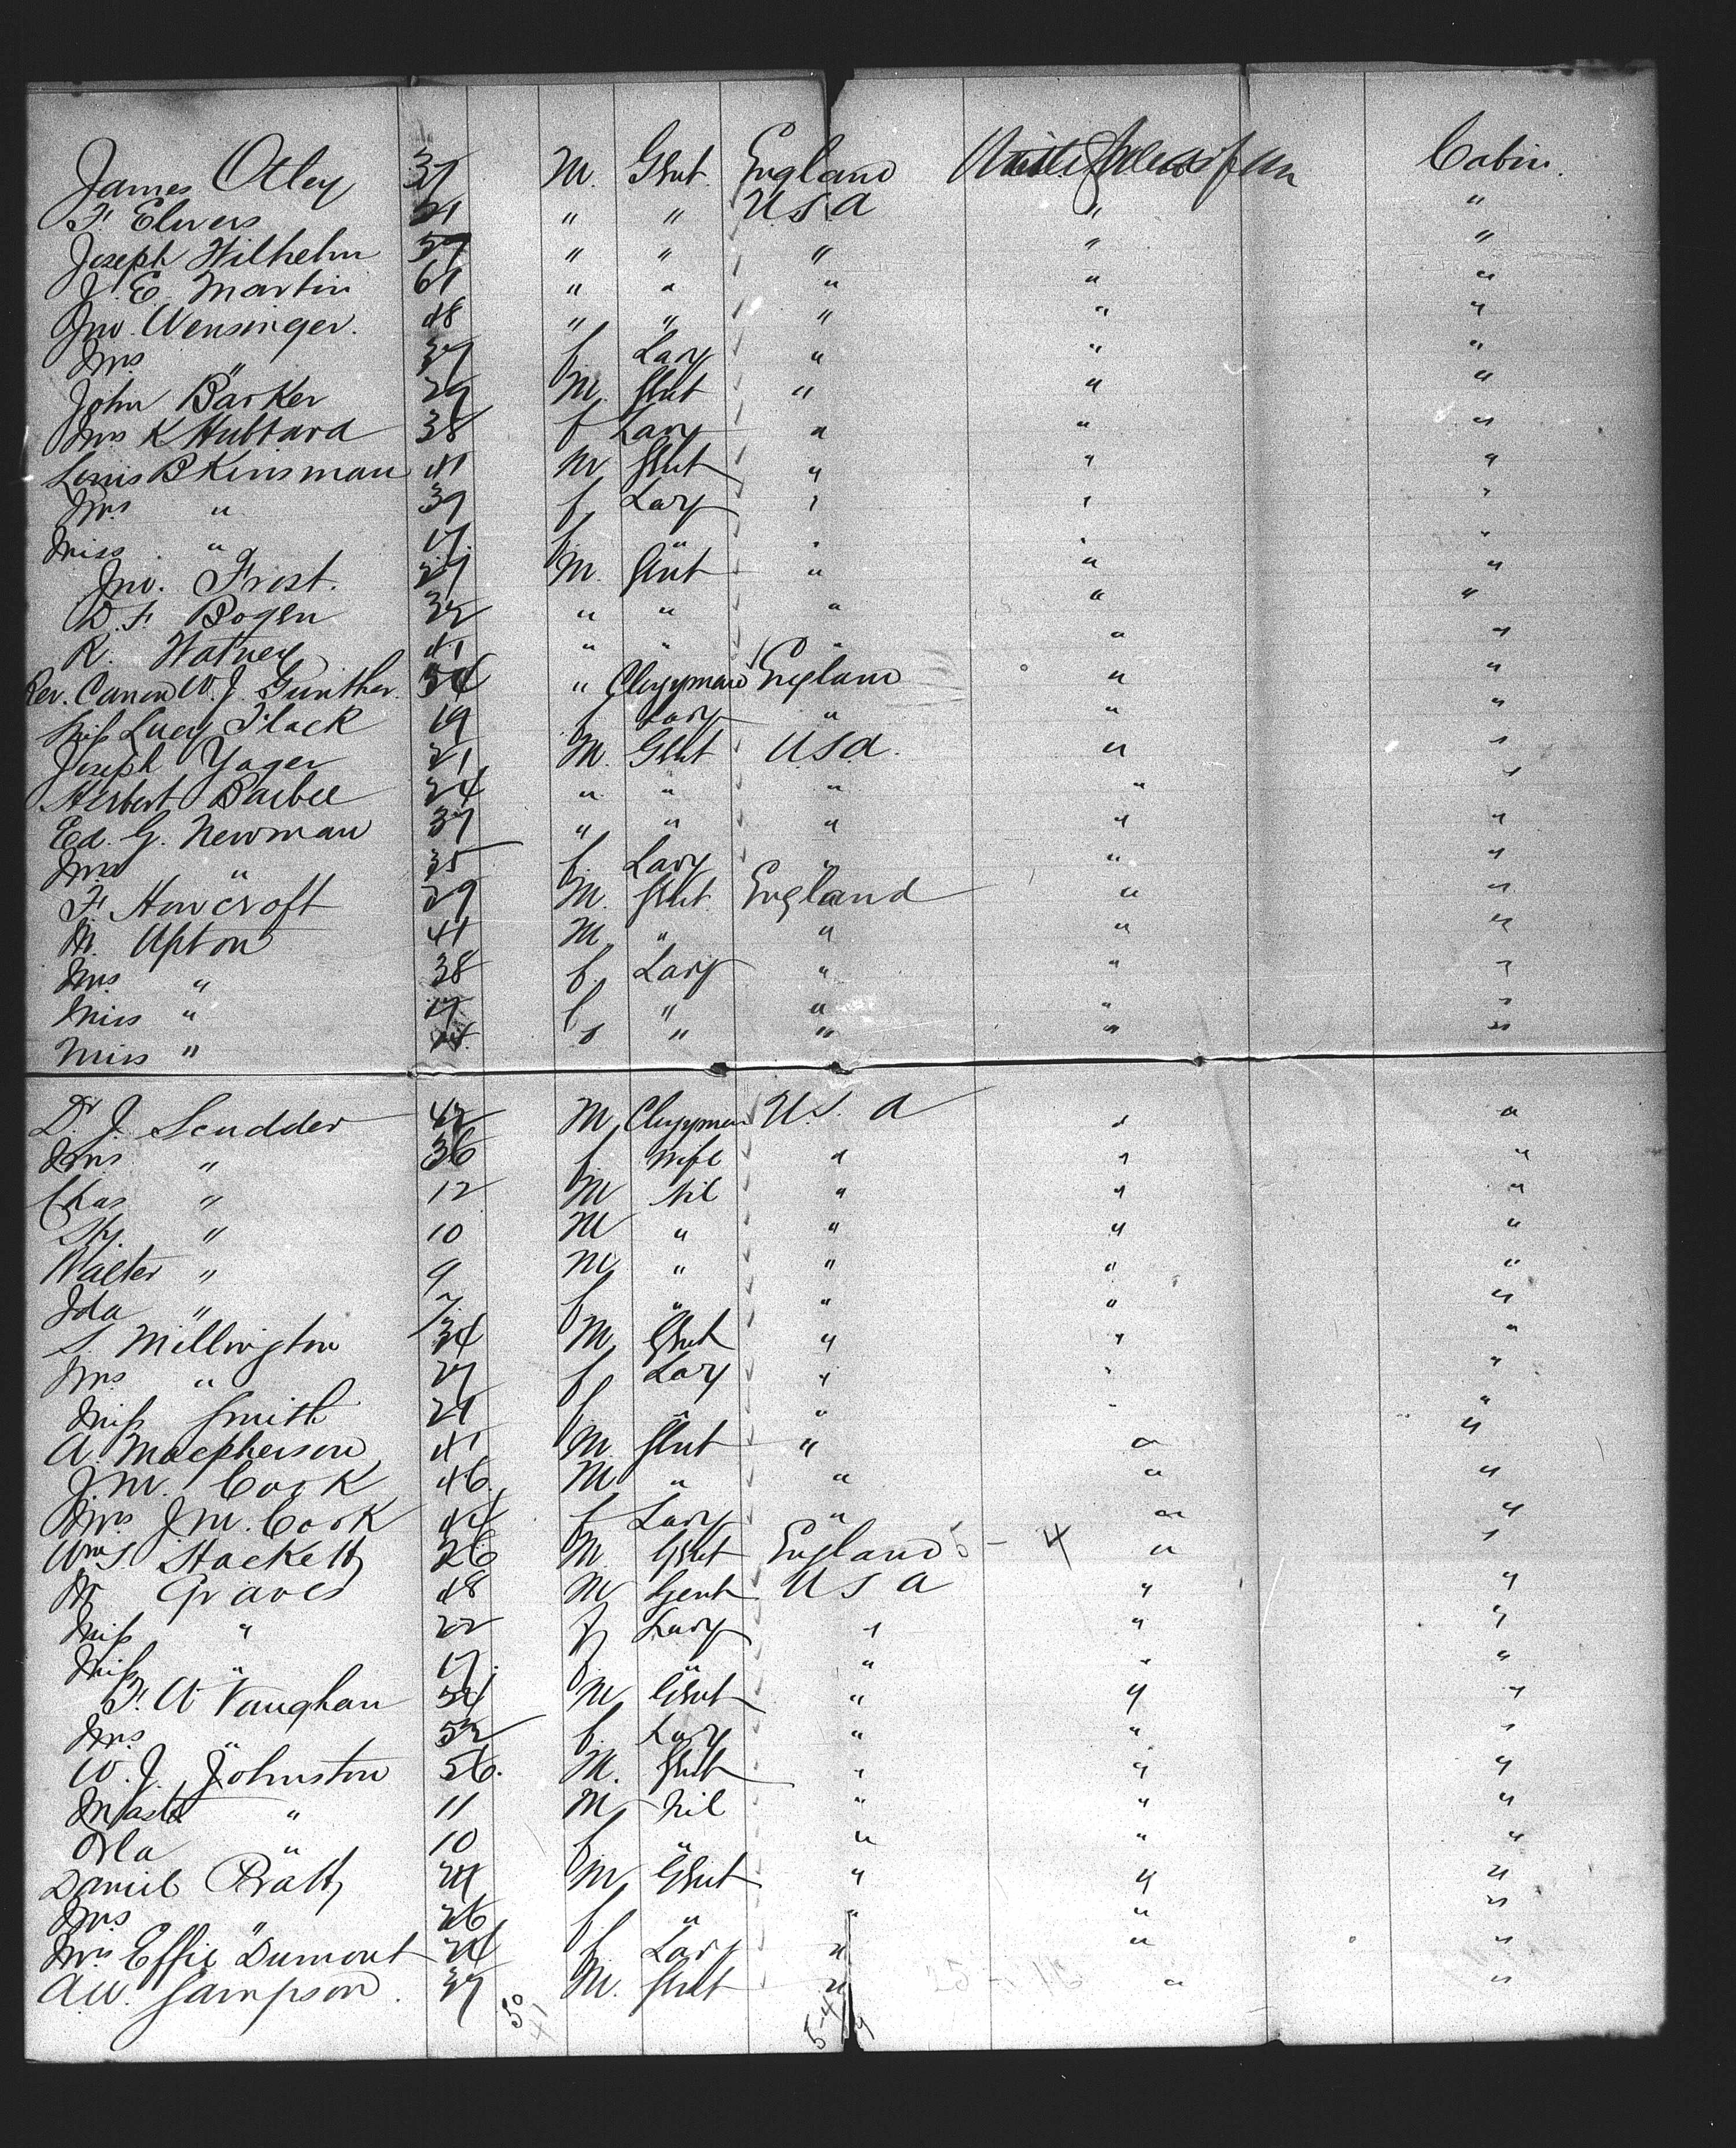 James Otley 37 M. Gent. England United States of Am Cabin.
F. Elwers 21 " " U S A " "
Joseph Wilhelm 57 " " " " "
J. E. Martin 61 " " " " "
Jno. Wensinger. 48 " " " " "
Mrs " 37 f Lady " " "
John Barker 29 M. Gent " " "
Mrs K Hubbard 38 f Lady " " "
Louis B Kinsman 41 M Gent " " "
Mrs " 39 f Lady " " "
Miss " 17. f " " " "
Jno. Frost. 27 M. Gent " " "
D. F. Bogen 32 " " " " "
R. Watney 41 " " " " "
Rev. Canon W. J. Gunther. 54 " Clergyman England " "
Miss Lucy Flack 19 f Lady " " "
Joseph Yager 21 M. Gent U S a. " "
Herbert Barbee 34 " " " " "
Ed. G. Newman 37 " " " " "
Mrs " 35 f. Lady " " "
F. Howcroft 29 M. Gent. England " "
M. Upton 41 M. " " " "
Mrs " 38 f. Lady " " "
Miss " 17. f " " " "
Miss " f " " " "
Dr. J. Scudder 42 M Clergyman U S. A " "
Mrs " 36 f. Wife " " "
Chas " 12 M Nil " " "
Hy. " 10 M " " " "
Walter " 9 M " " " "
Ida " 7 f " " " "
S. Millington 34 M Gent " " "
Mrs " 27 f Lady " " "
Miss Smith 21 f " " " "
A. Macpherson 41 M. Gent " " "
J. M. Cook 46. M " " " "
Mrs. J M. Cook 44 f Lady " " "
Wm S. Hackett 26 M. Gent England 5 - 4 " "
Mr Graves 48 M Gent U S A " "
Miss " 22 f Lady " " "
Miss " 17. f. " " " "
F. W Vaughan 54 M Gent " " "
Mrs. " 52 f. Lady " " "
W. J. Johnston 56. M. Gent " " "
Mastr " 11 M Nil " " "
Orla " 10 f " " " "
Daniel Pratt 29 M Gent " " "
Mrs. " 26 f. " " " "
Mrs Effie Dumont 24 f Lady " " "
A. W. Sampson. 37 M. Gent " " "
50
41
5-4
9